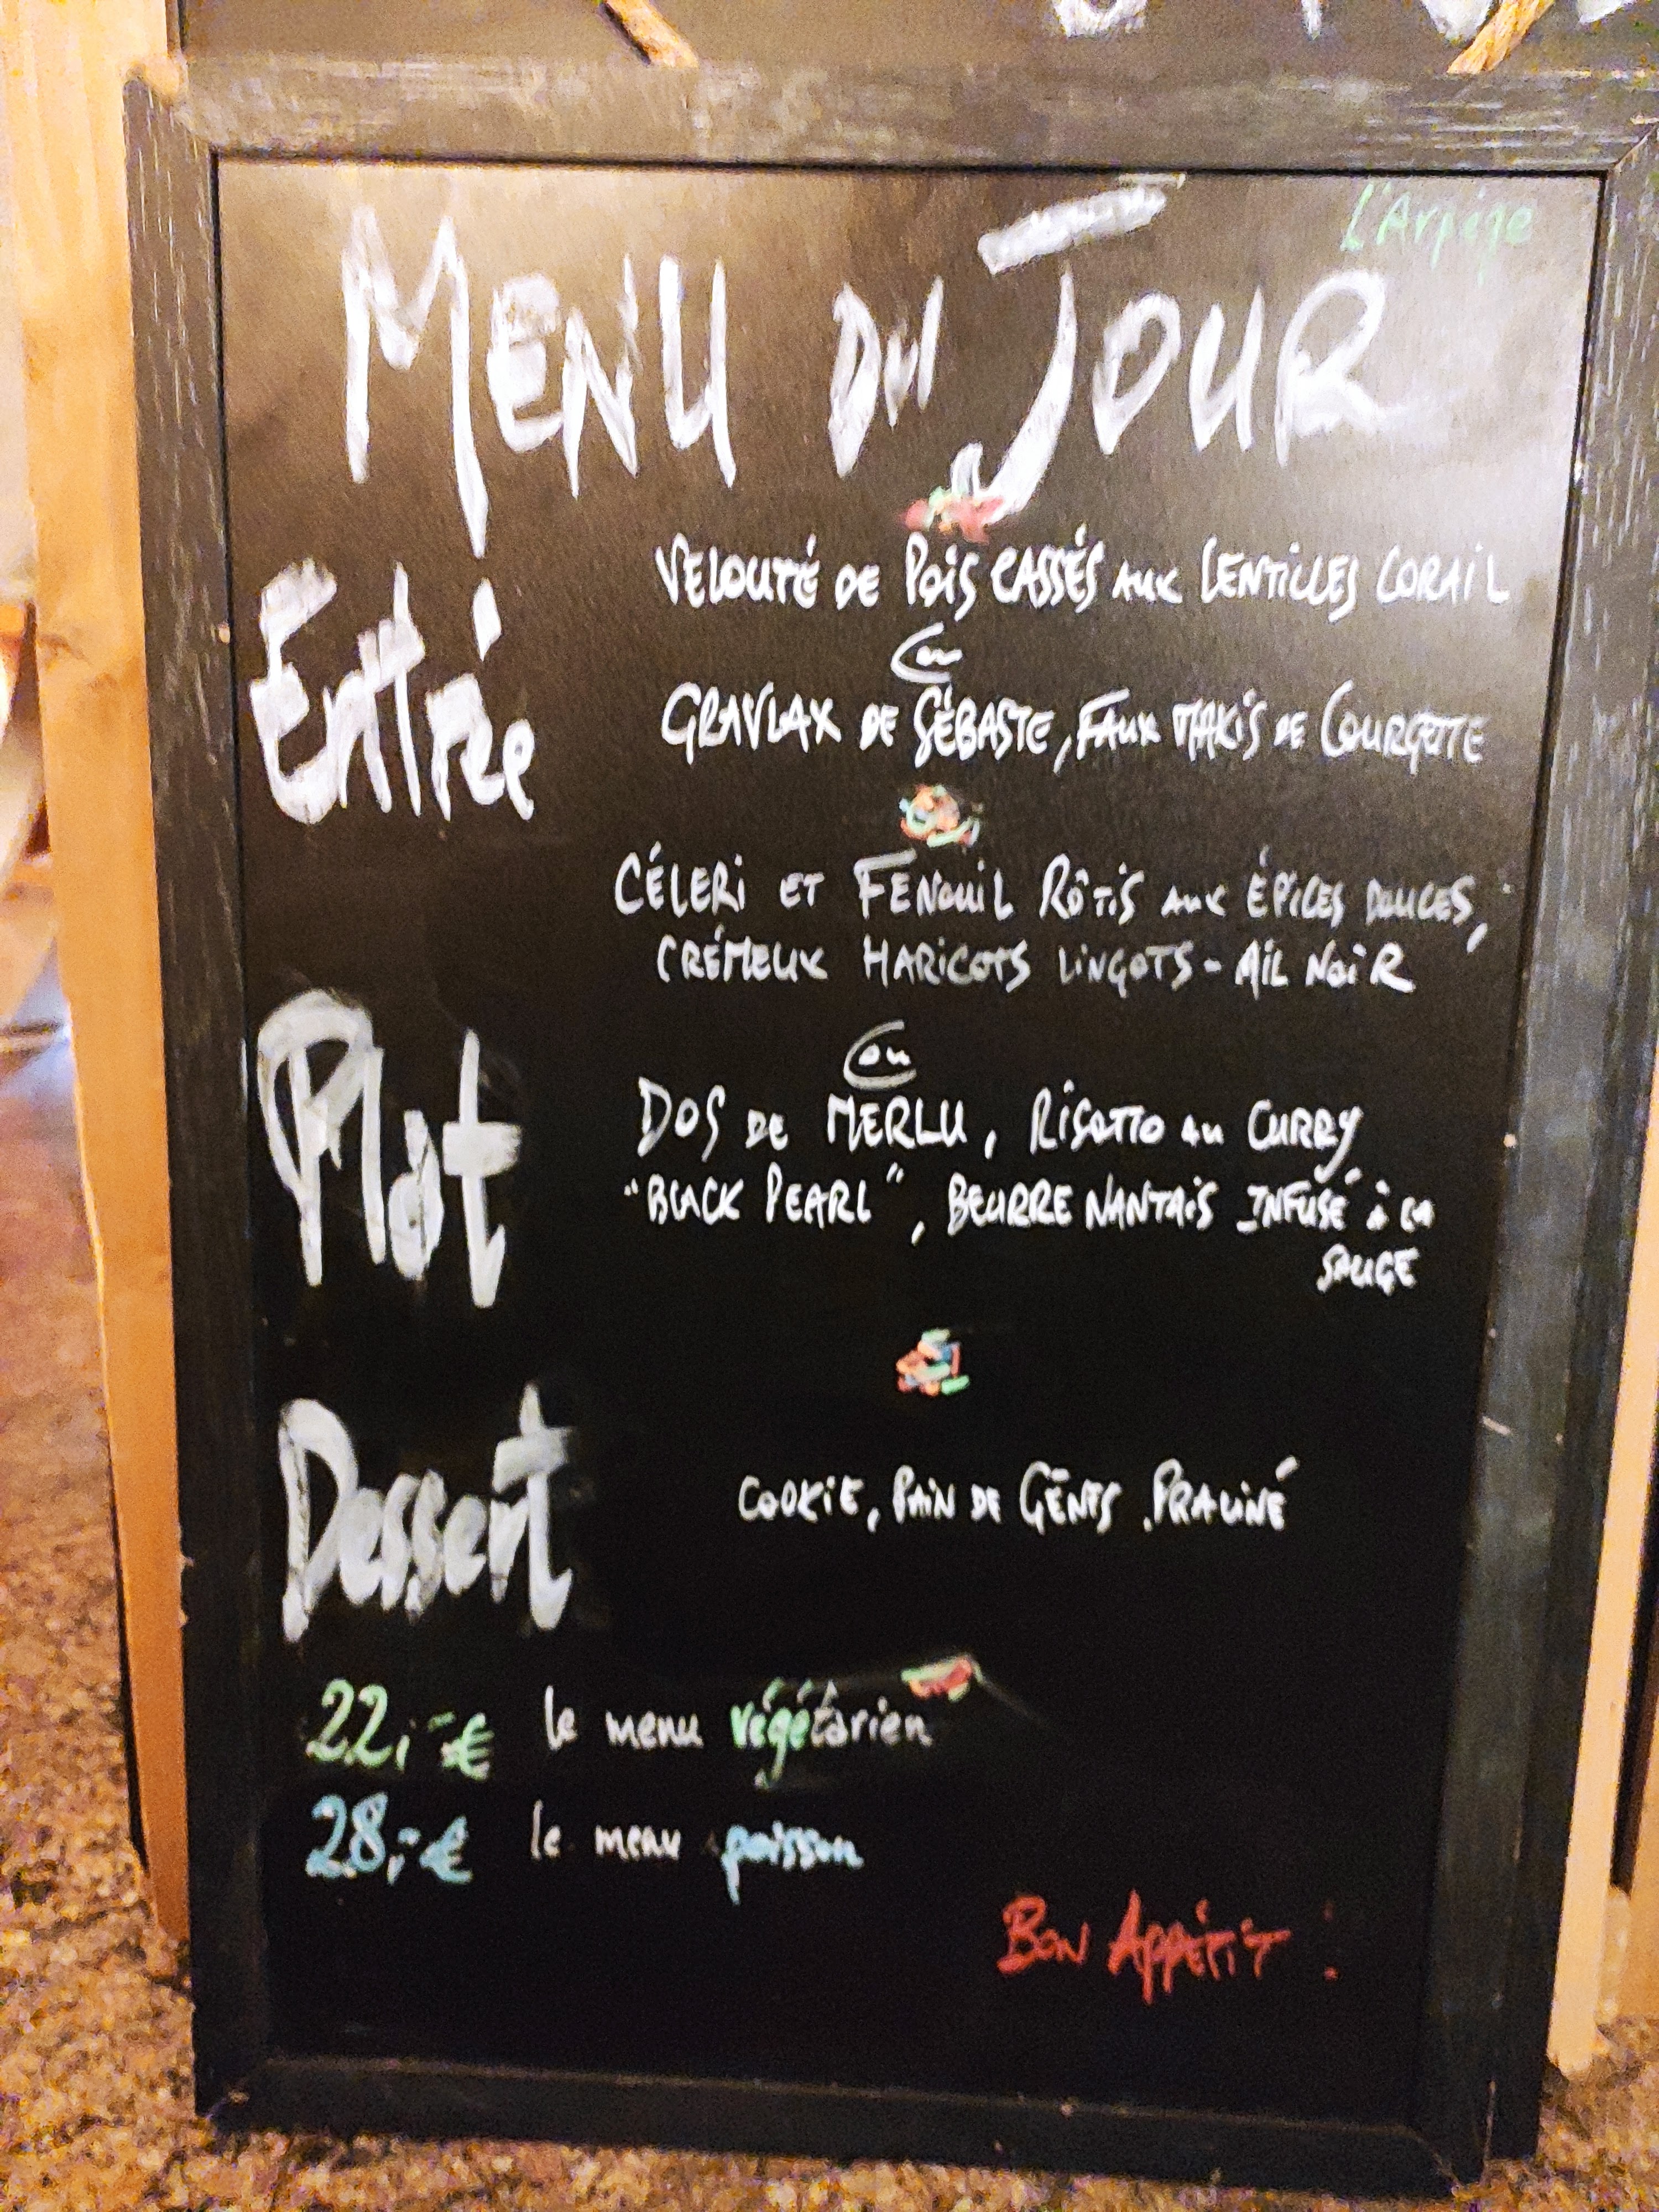 L'Arpège
MENU DU JOUR
Entrée
VELOUTÉ DE POIS CASSÉS AUX LENTILLES CORAIL
ou
GRAVLAX DE SÉBASTE, FAUX MAKIS DE COURGETTE
CÉLERI ET FENOUIL RÔTIS AUX ÉPICES DOUCES,
CRÉMEUX HARICOTS LINGOTS - AIL NOIR
Plat
ou
DOS DE MERLU, RISOTTO AU CURRY
"BLACK PEARL", BEURRE NANTAIS INFUSÉ À LA
SAUGE
Dessert
COOKIE, PAIN DE GÊNES, PRALINÉ
22,-€ le menu végétarien
28,-€ le menu poisson
BON APPÉTIT !